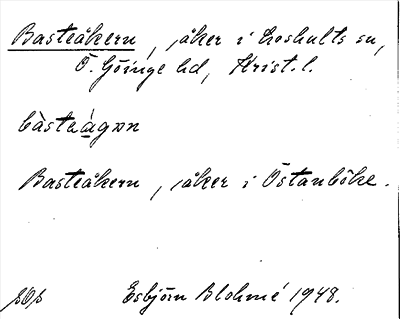 Basteåkern, åker i Loshults sn,
Ö. Göinge hd, Krist. l.
bàsteágən
Basteåkern, åker i Östanböke.
Esbjörn Blohmé 1948.